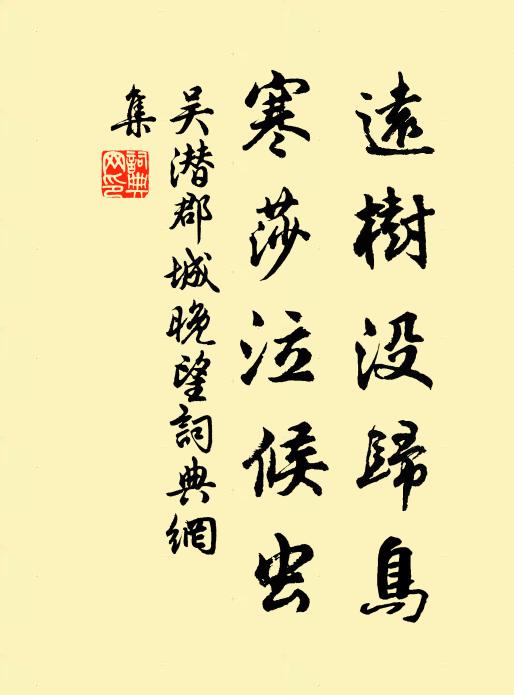 遠樹没歸鳥
寒莎泣候虫
吴潜郡城晚望詞典網
集
詞典網印